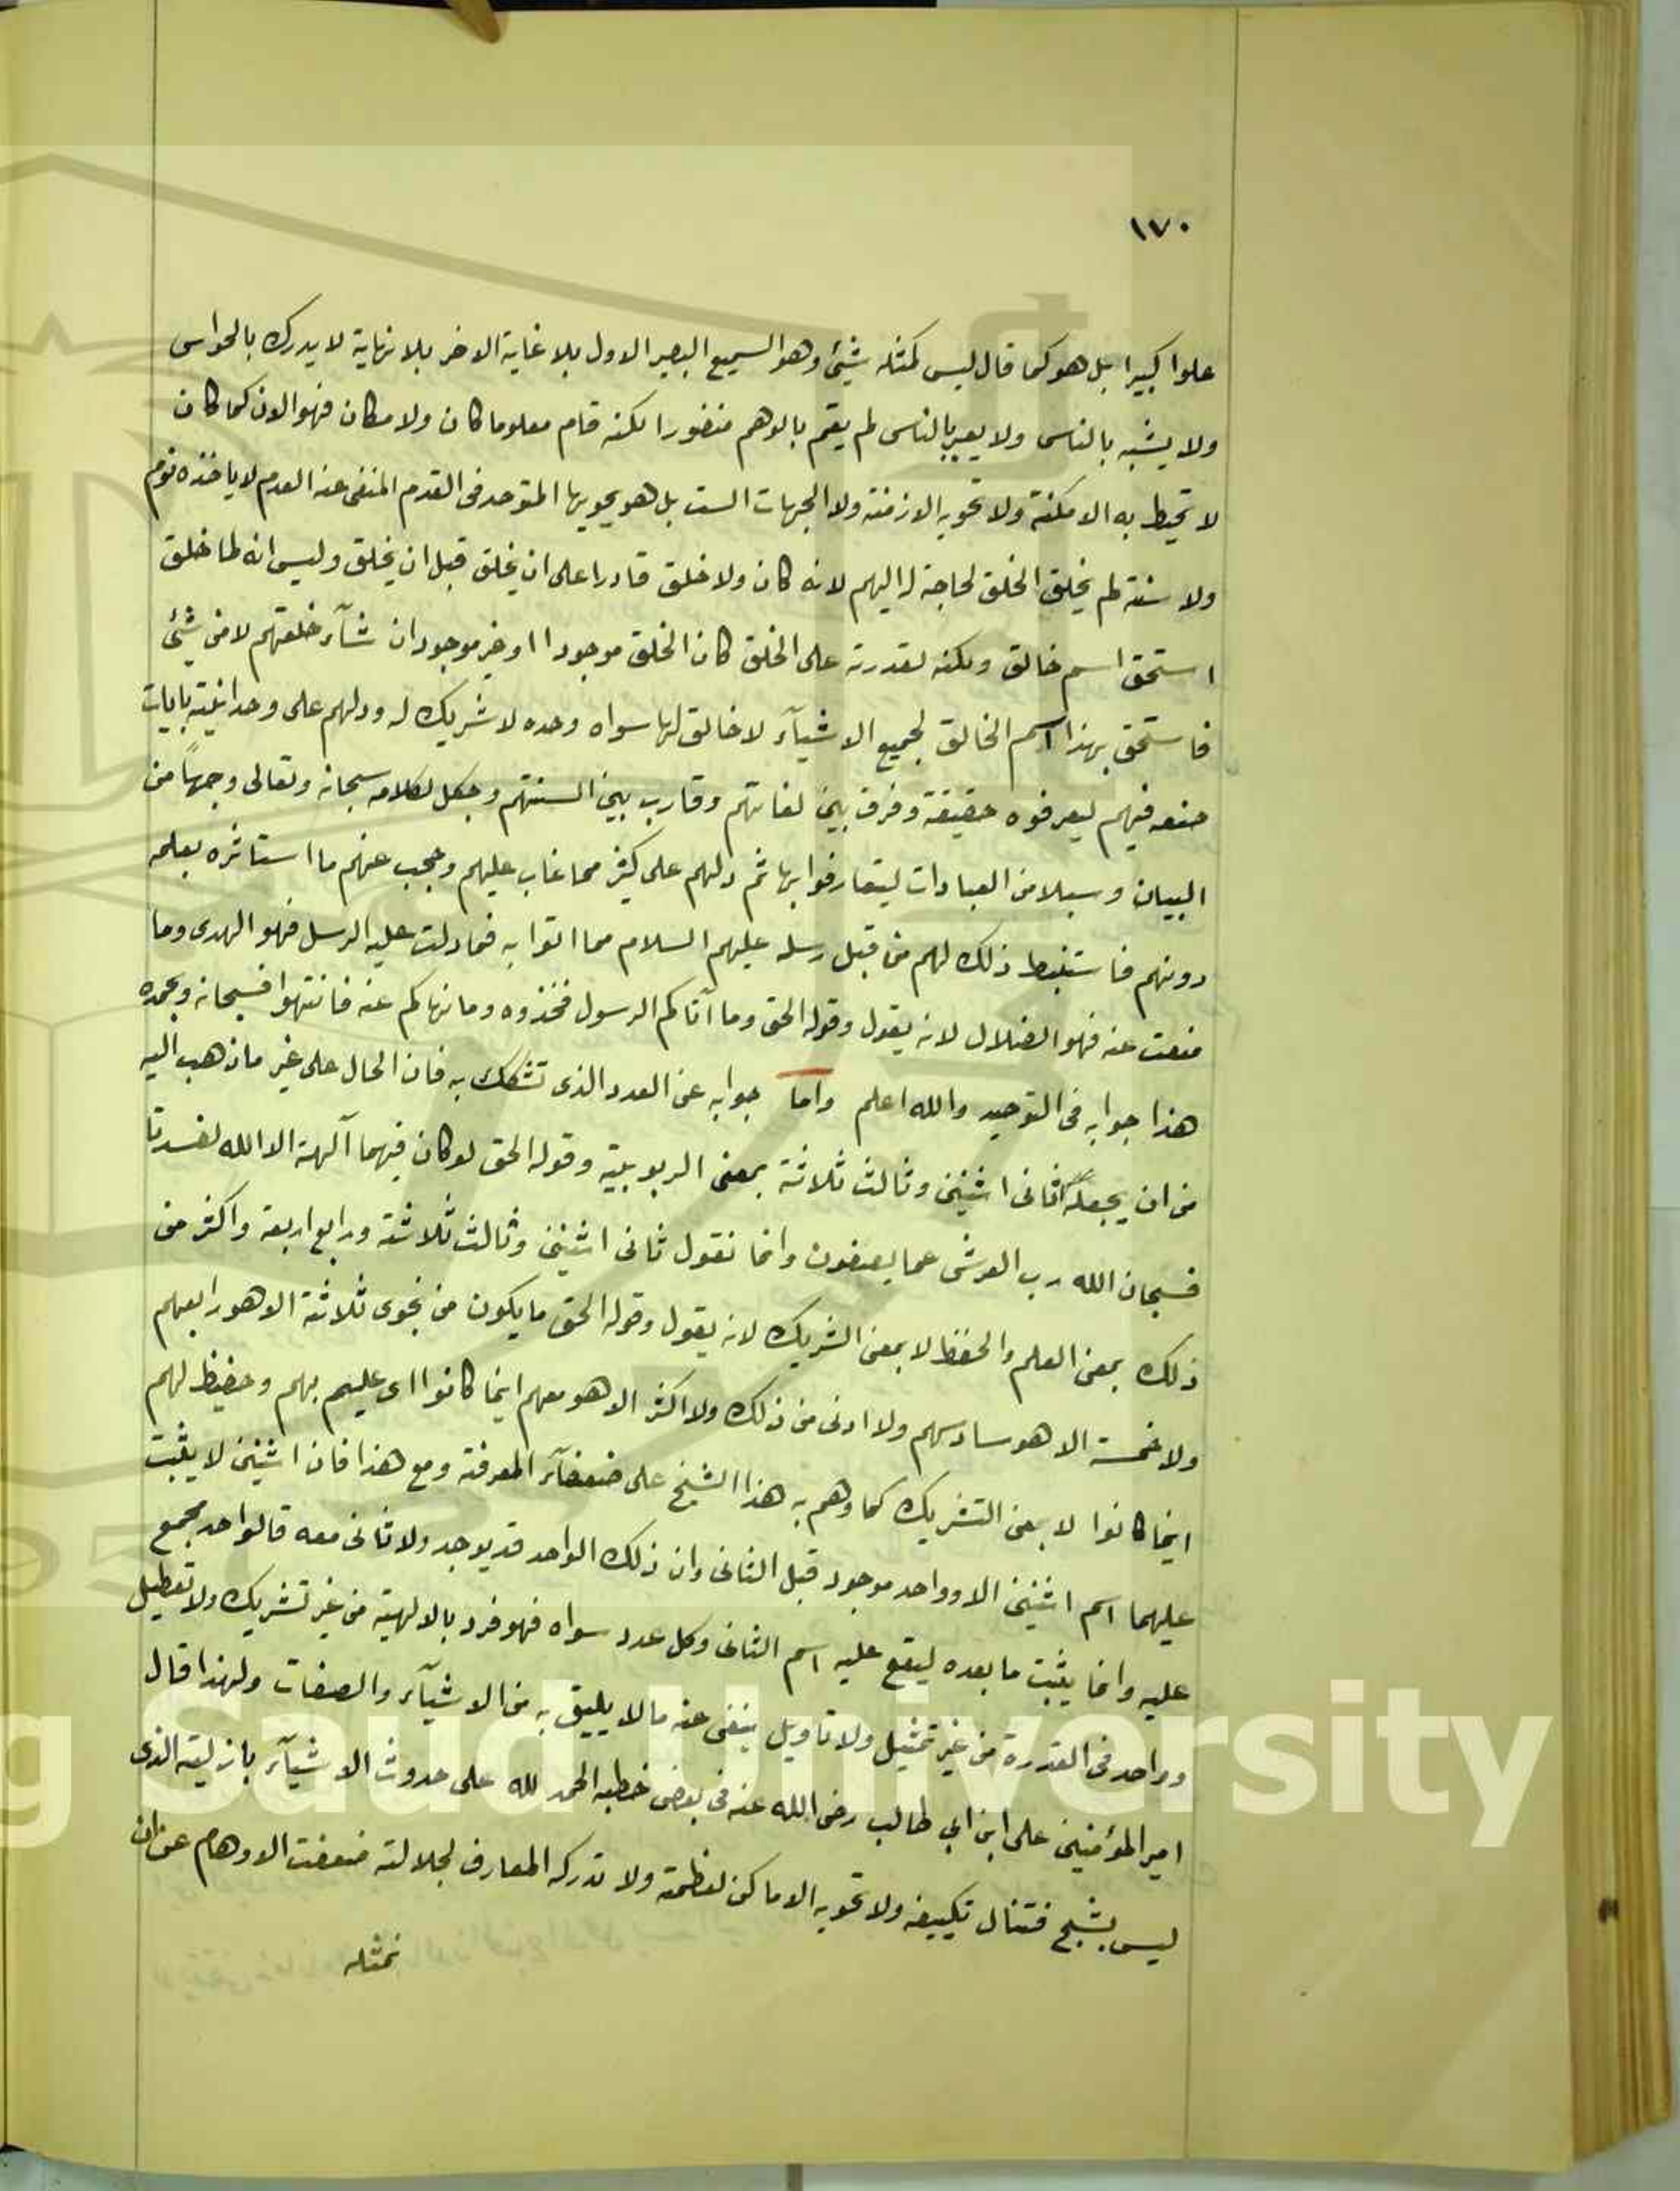 ١٧٠
علوا كبيرا بل هو كما قال ليس كمثله شيئ وهو السميع البصير الاول بلا غاية الاخر بلا نهاية لا يدرك بالحواس
ولا يشبه بالناس ولا يعبر بالناس لم يقم بالوهم منضورا لكنه قام معلوما كان ولا مكان فهو الان كما كان
لا تحيط به الامكنة ولا تحويه الازمنة ولا الجهات الست بل هو يحويها المتوحد فى القدم المنفى عنه العدم لا ياخذه نوم
ولا سنة لم يخلق الخلق لحاجة له اليهم لانه كان ولا خلق قادرا على ان يخلق قبل ان يخلق وليس انه لما خلق
استحق اسم خالق ولكنه لقدرته على الخلق كان الخلق موجودا او غير موجود ان شآء خلقهم لا من شيئ
فاستحق بهذا اسم الخالق لجميع الاشيآء لا خالق لها سواه وحده لا شريك له ودلهم على وحدانيته بايات
صنعه فيهم ليعرفوه حقيقة وفرق بين لغاتهم وقارب بين السنتهم وجعل لكلامه سبحانه وتعالى وجهاً من
البيان وسبلا من العبادات ليتعارفوا بها ثم دلهم على كثير مما غاب عليهم وحجب عنهم ما استاثره بعلمه
دونهم فاستنبط ذلك لهم من قبل رسله عليهم السلام مما اتوا به فما دلت عليه الرسل فهو الهدى وما
منعت عنه فهو الضلال لانه يقول وقوله الحق وما آتاكم الرسول فخذوه وما نهاكم عنه فانتهوا فسبحانه وبحمده
هذا جوابه فى التوحيد والله اعلم واما جوابه عن العدد الذى تشكك به فان الحال على غير ما ذهب اليه
من ان يجعله ثانى اثنين وثالث ثلاثة بمعنى الربوبية وقوله الحق لو كان فيهما آلهة الا الله لفسدتا
فسبحان الله رب العرش عما يصفون وانما نقول ثانى اثنين وثالث ثلاثة ورابع اربعة واكثر من
ذلك بمعنى العلم والحفظ لا بمعنى الشريك لانه يقول وقوله الحق ما يكون من نجوى ثلاثة الا هو رابعهم
ولا خمسة الا هو سادسهم ولا ادنى من ذلك ولا اكثر الا هو معهم اينما كانوا اى عليم بهم وحفيظ لهم
اينما كانوا لا بمعنى التشريك كما وهم به هذا الشيخ على ضعفآء المعرفة ومع هذا فان اثنين لا يثبت
عليهما اسم اثنين الا وواحد موجود قبل الثانى وان ذلك الواحد قد يوجد ولا ثانى معه فالواحد مجمع
عليه وانما يثبت ما بعده ليقع عليه اسم الثانى وكل عدد سواه فهو فرد بالالهية من غير تشريك ولا تعطيل
وواحد فى القدرة من غير تمثيل ولا تاويل ينفى عنه ما لا يليق به من الاشيآء والصفات ولهذا قال
امير المؤمنين على ابن ابي طالب رضى الله عنه فى بعض خطبه الحمد لله على حدوث الاشيآء بازليته الذى
ليس بشبح فتنال تكييفه ولا تحويه الاماكن لعظمته ولا تدركه المعارف لجلالته ضعفت الاوهام عن ان
نمثله
g Saud University